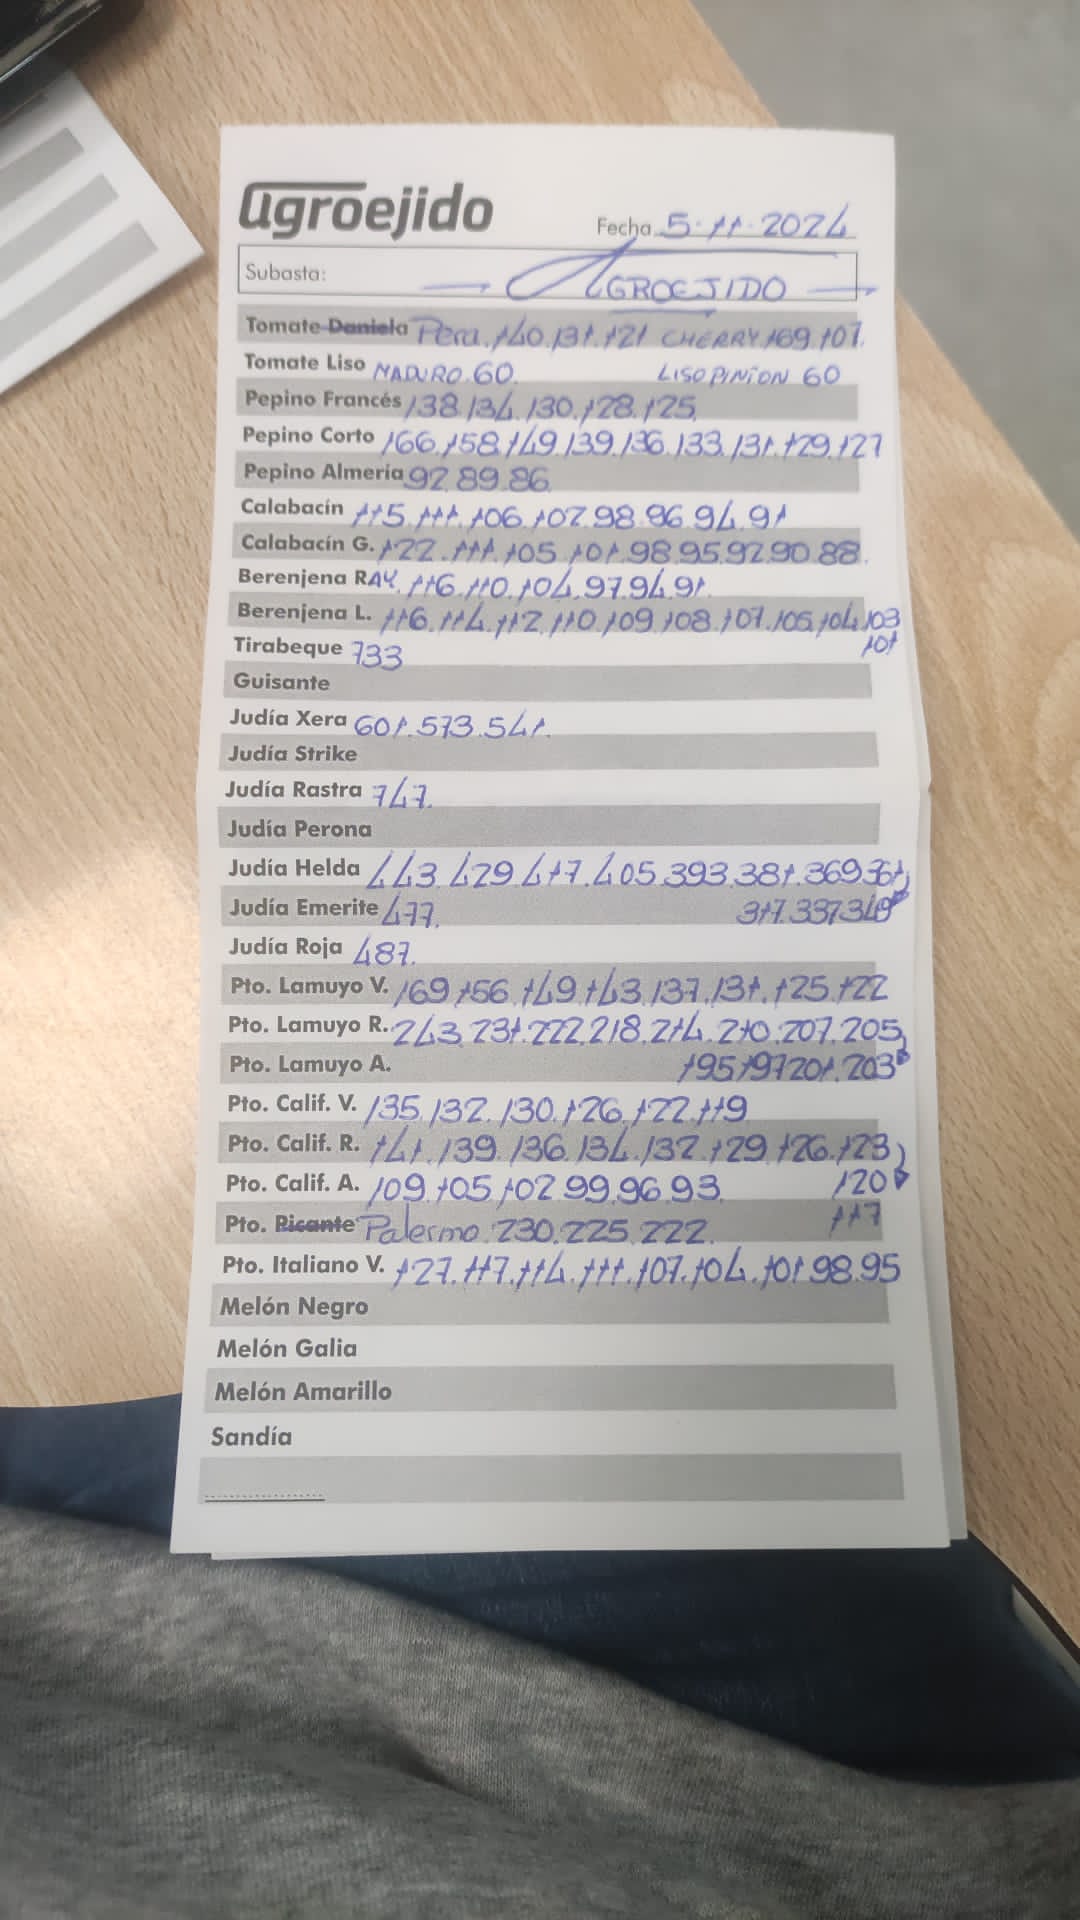 agroejido
Fecha 5.11.2024
Subasta: AGROEJIDO
Tomate Daniela Pera.140.131.121 CHERRY.169.107.
Tomate Liso MADURO.60. LISO PINTON 60
Pepino Francés 138.134.130.128.125.
Pepino Corto 166.158.149.139.136.133.131.129.127
Pepino Almería 92.89.86
Calabacín 115.111.106.102.98.96.94.91
Calabacín G. 122.111.105.101.98.95.92.90.88.
Berenjena RAY. 116.110.104.97.94.91.
Berenjena L. 116.114.112.110.109.108.107.105.104.103
101
Tirabeque 733
Guisante
Judía Xera 601.573.541.
Judía Strike
Judía Rastra 747.
Judía Perona
Judía Helda 443.429.417.405.393.381.369.361
Judía Emerite 477. 317.337.349
Judía Roja 487.
Pto. Lamuyo V. 169.156.149.143.137.131.125.122
Pto. Lamuyo R. 243.231.222.218.214.210.207.205
Pto. Lamuyo A. 195.197.201.203
Pto. Calif. V. 135.132.130.126.122.119
Pto. Calif. R. 141.139.136.134.132.129.126.123
Pto. Calif. A. 109.105.102.99.96.93. 120
Pto. Picante Palermo.230.225.222. 117
Pto. Italiano V. 127.117.114.111.107.104.101.98.95
Melón Negro
Melón Galia
Melón Amarillo
Sandía